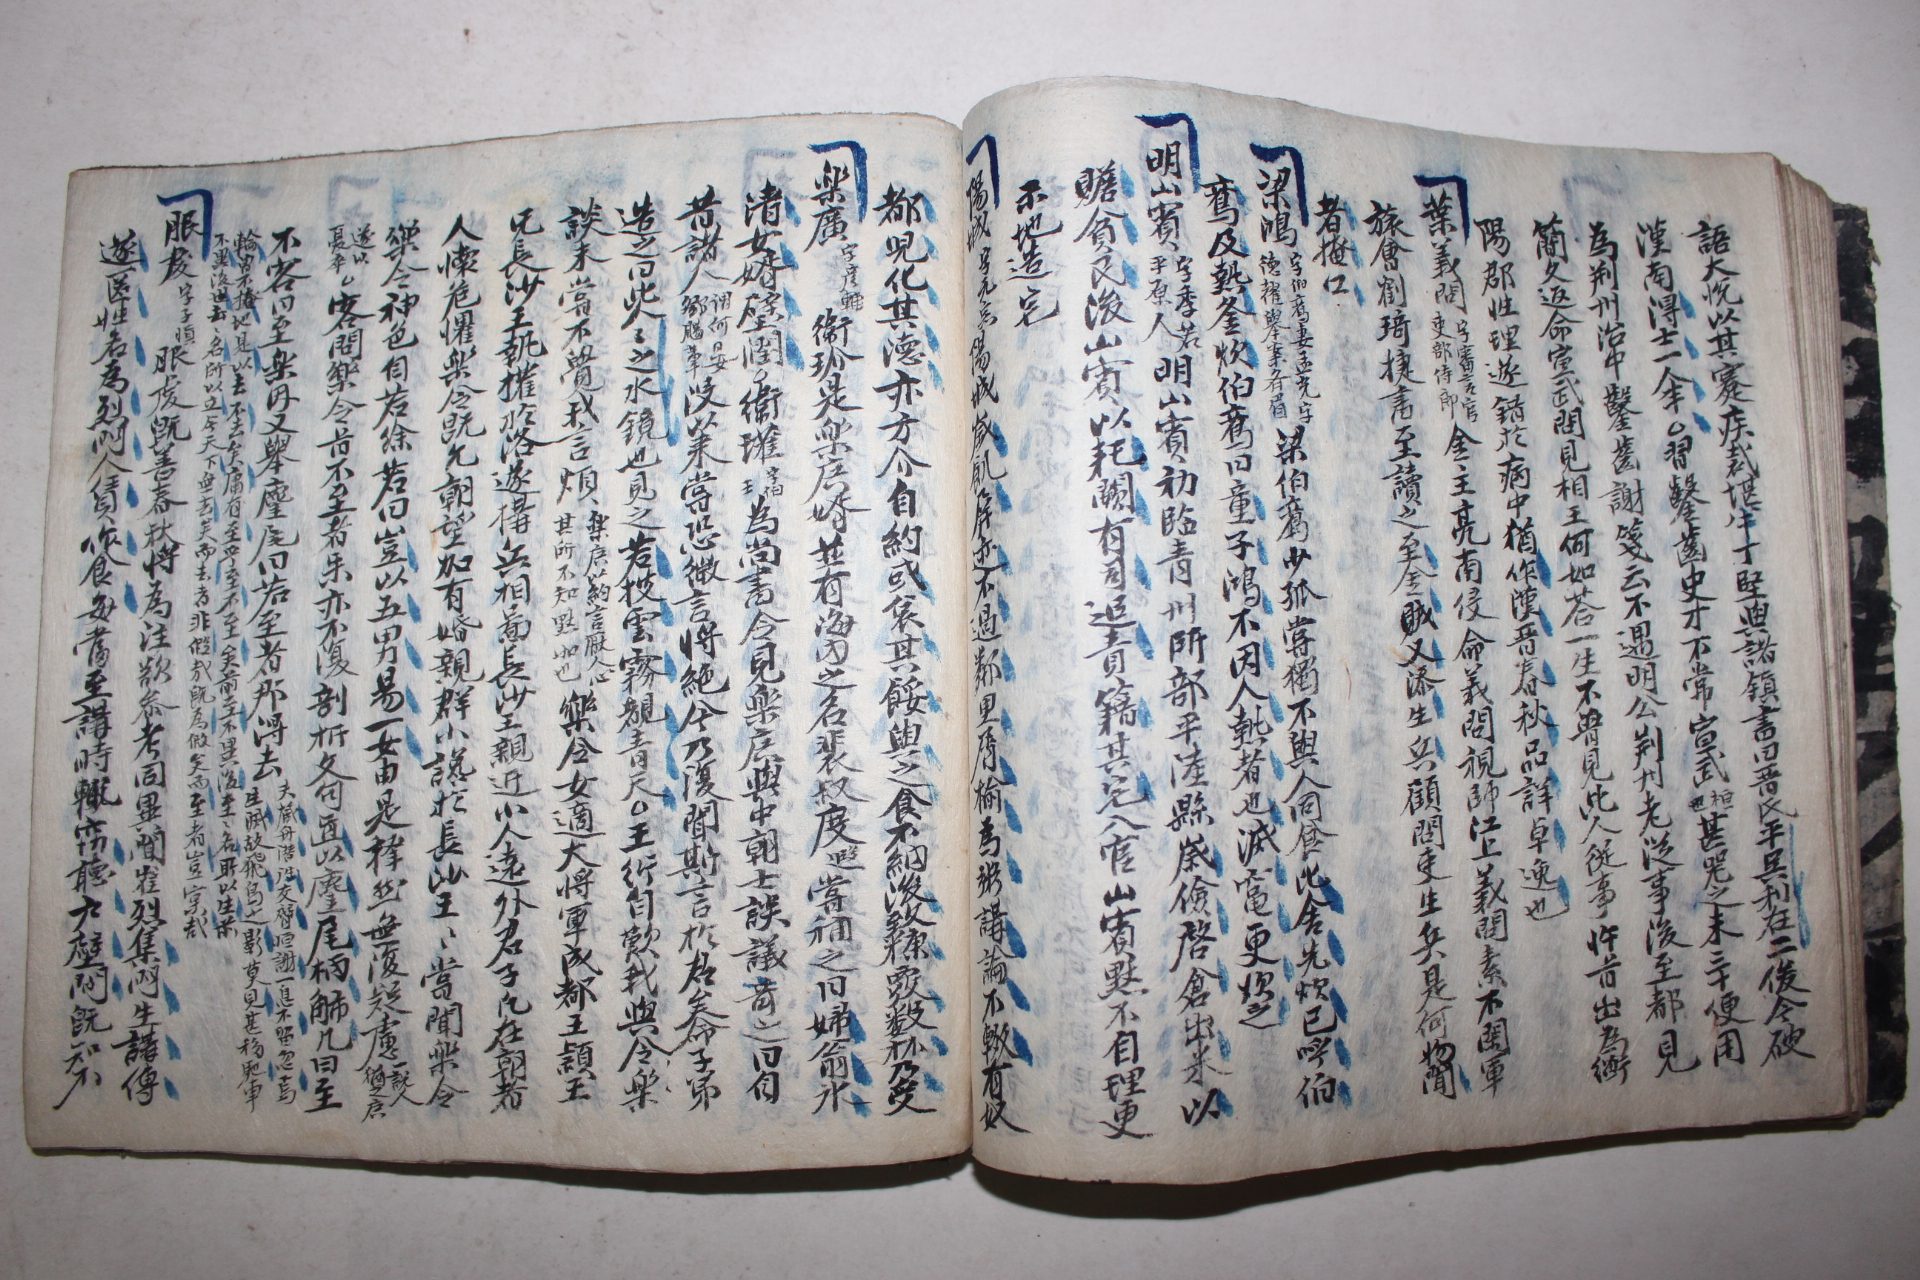 語大悅以其蹇疾裁堪半丁堅與諸鎮書曰晋氏平吳利在二俊今破
漢南得士一个半習鑿齒史才不常宣武桓也甚器之未三十便用
為荆州治中鑿齒謝箋云不遇明公荆州老從事後至都見
簡文返命宣武問見相王何如答一生不曾見此人從事忤旨出為衡
陽郡性理遂錯於病中猶作漢晋春秋品評卓逸也
葉義問字審言官吏部侍郎金主亮南侵命義問視師江上義問素不閑軍
旅會劉琦捷書至讀之至金賊又添生兵顧問吏生兵是何物聞
者掩口
梁鴻字伯鸞妻孟光字德耀擧案齊眉梁伯鸞少孤嘗獨不與人同食比舍先炊已呼伯
鸞及熱釜炊伯鸞曰童子鴻不因人熱者也滅竈更炊之
明山賓字季若平原人明山賓初臨青州所部平陸縣歲儉啓倉出米以
贍貧民後山賓以耗闕有司追責籍其宅入官山賓默不自理更
市地造宅
陽城字元宗陽城歲飢屏迹不過鄰里屑榆為粥講論不輟有奴
都兒化其德亦方介自約或哀其餒與之食不納後致糠覈數杯乃受
樂廣字彦輔衛玠是樂廣婿並有海內之名裴叔度遐嘗稱之曰婦翁氷
清女婿壁潤衛瓘字伯玉為尚書令見樂廣與中朝士談議奇之曰自
昔諸人謂何晏鄧颺等沒以來嘗恐微言將絕今乃復聞斯言於君矣命子弟
造之曰此人之水鏡也見之若披雲霧覩青天王衍自歎我與令樂
談未嘗不覺我言煩樂廣以約言厭人心其所不知默如也樂令女適大將軍成都王頴王
兄長沙王執權於洛遂搆兵相啚長沙王親近小人遠外君子凡在朝者
人懷危懼樂令旣允朝望加有婚親群小讒於長沙王王嘗聞樂令
樂令神色自若徐若曰豈以五男易一女由是釋然無復疑慮
客問樂令旨不至者樂亦不復剖析文句直以麈尾柄觸几曰至
不客曰至樂因又擧麈尾曰若至者那得去
服虔字子愼服虔旣善春秋將為注欲參考同異聞崔烈集門生講傳
遂匿姓名為烈門人賃作食每當至講時輒竊聽戶壁間旣知不